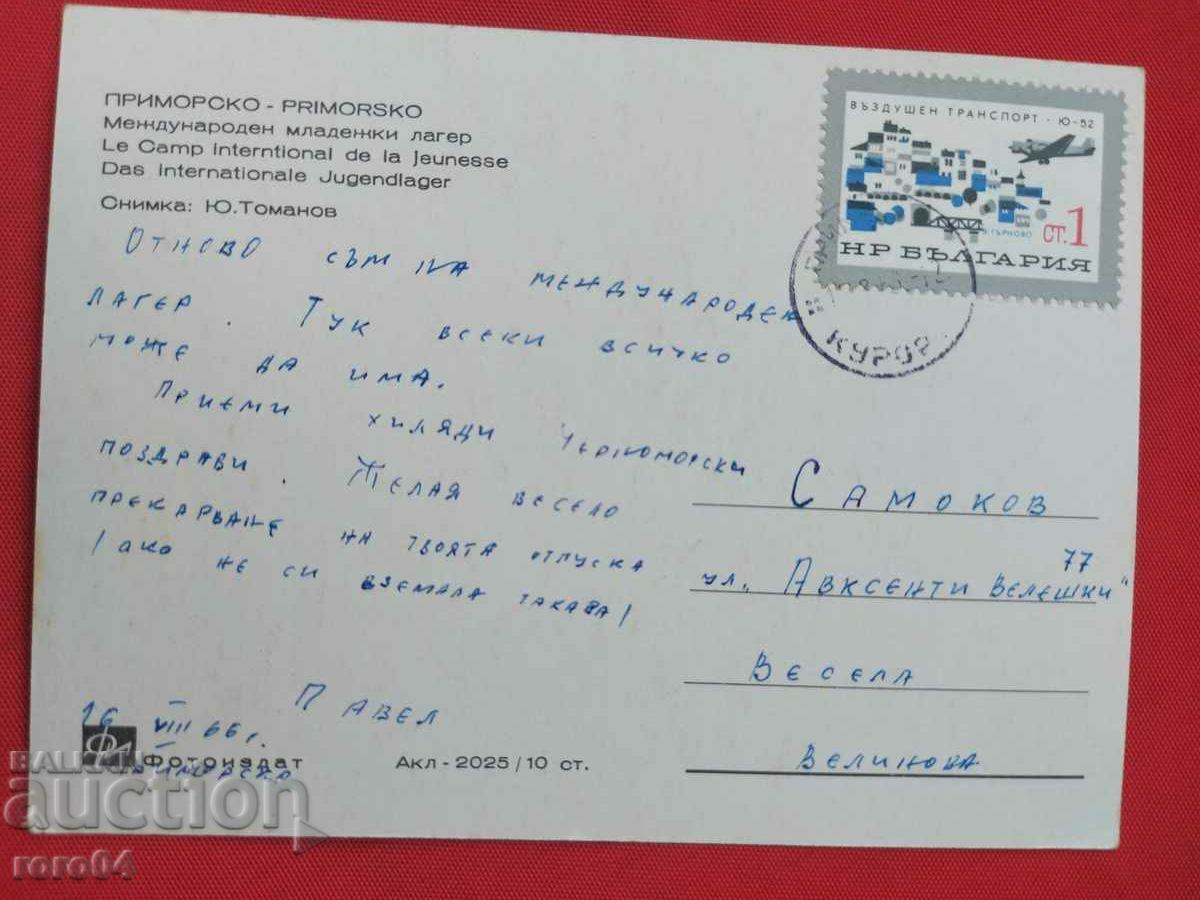 ПРИМОРСКО - PRIMORSKO
Международен младежки лагер
Le Camp Interntional de la Jeunesse
Das Internationale Jugendlager
Снимка: Ю.Томанов
ВЪЗДУШЕН ТРАНСПОРТ · Ю-52
В. ТЪРНОВО
СТ. 1
НР БЪЛГАРИЯ
КУРОР
ОТНОВО СЪМ НА МЕЖДУНАРОДЕН
ЛАГЕР. ТУК ВСЕКИ ВСИЧКО
МОЖЕ ДА ИМА.
ПРИЕМИ ХИЛЯДИ ЧЕРНОМОРСКИ
ПОЗДРАВИ. ЖЕЛАЯ ВЕСЕЛО
ПРЕКАРВАНЕ НА ТВОЯТА ОТПУСКА
/АКО НЕ СИ ВЗЕМАЛА ТАКАВА/
ПАВЕЛ
16 VIII 66 г.
САМОКОВ
ул. „АВКСЕНТИ ВЕЛЕШКИ" 77
ВЕСЕЛА
ВЕЛИНОВА
Фотоиздат
Акл - 2025/10 ст.
BALKAN
auction
roro04